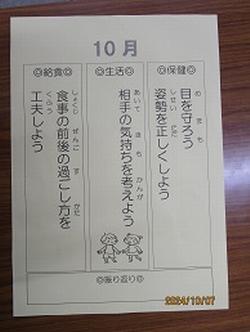 10月
◎保健◎
目を守ろう
姿勢を正しくしよう
◎生活◎
相手の気持ちを考えよう
◎給食◎
食事の前後の過ごし方を
工夫しよう
◎振り返り◎
2024/10/07